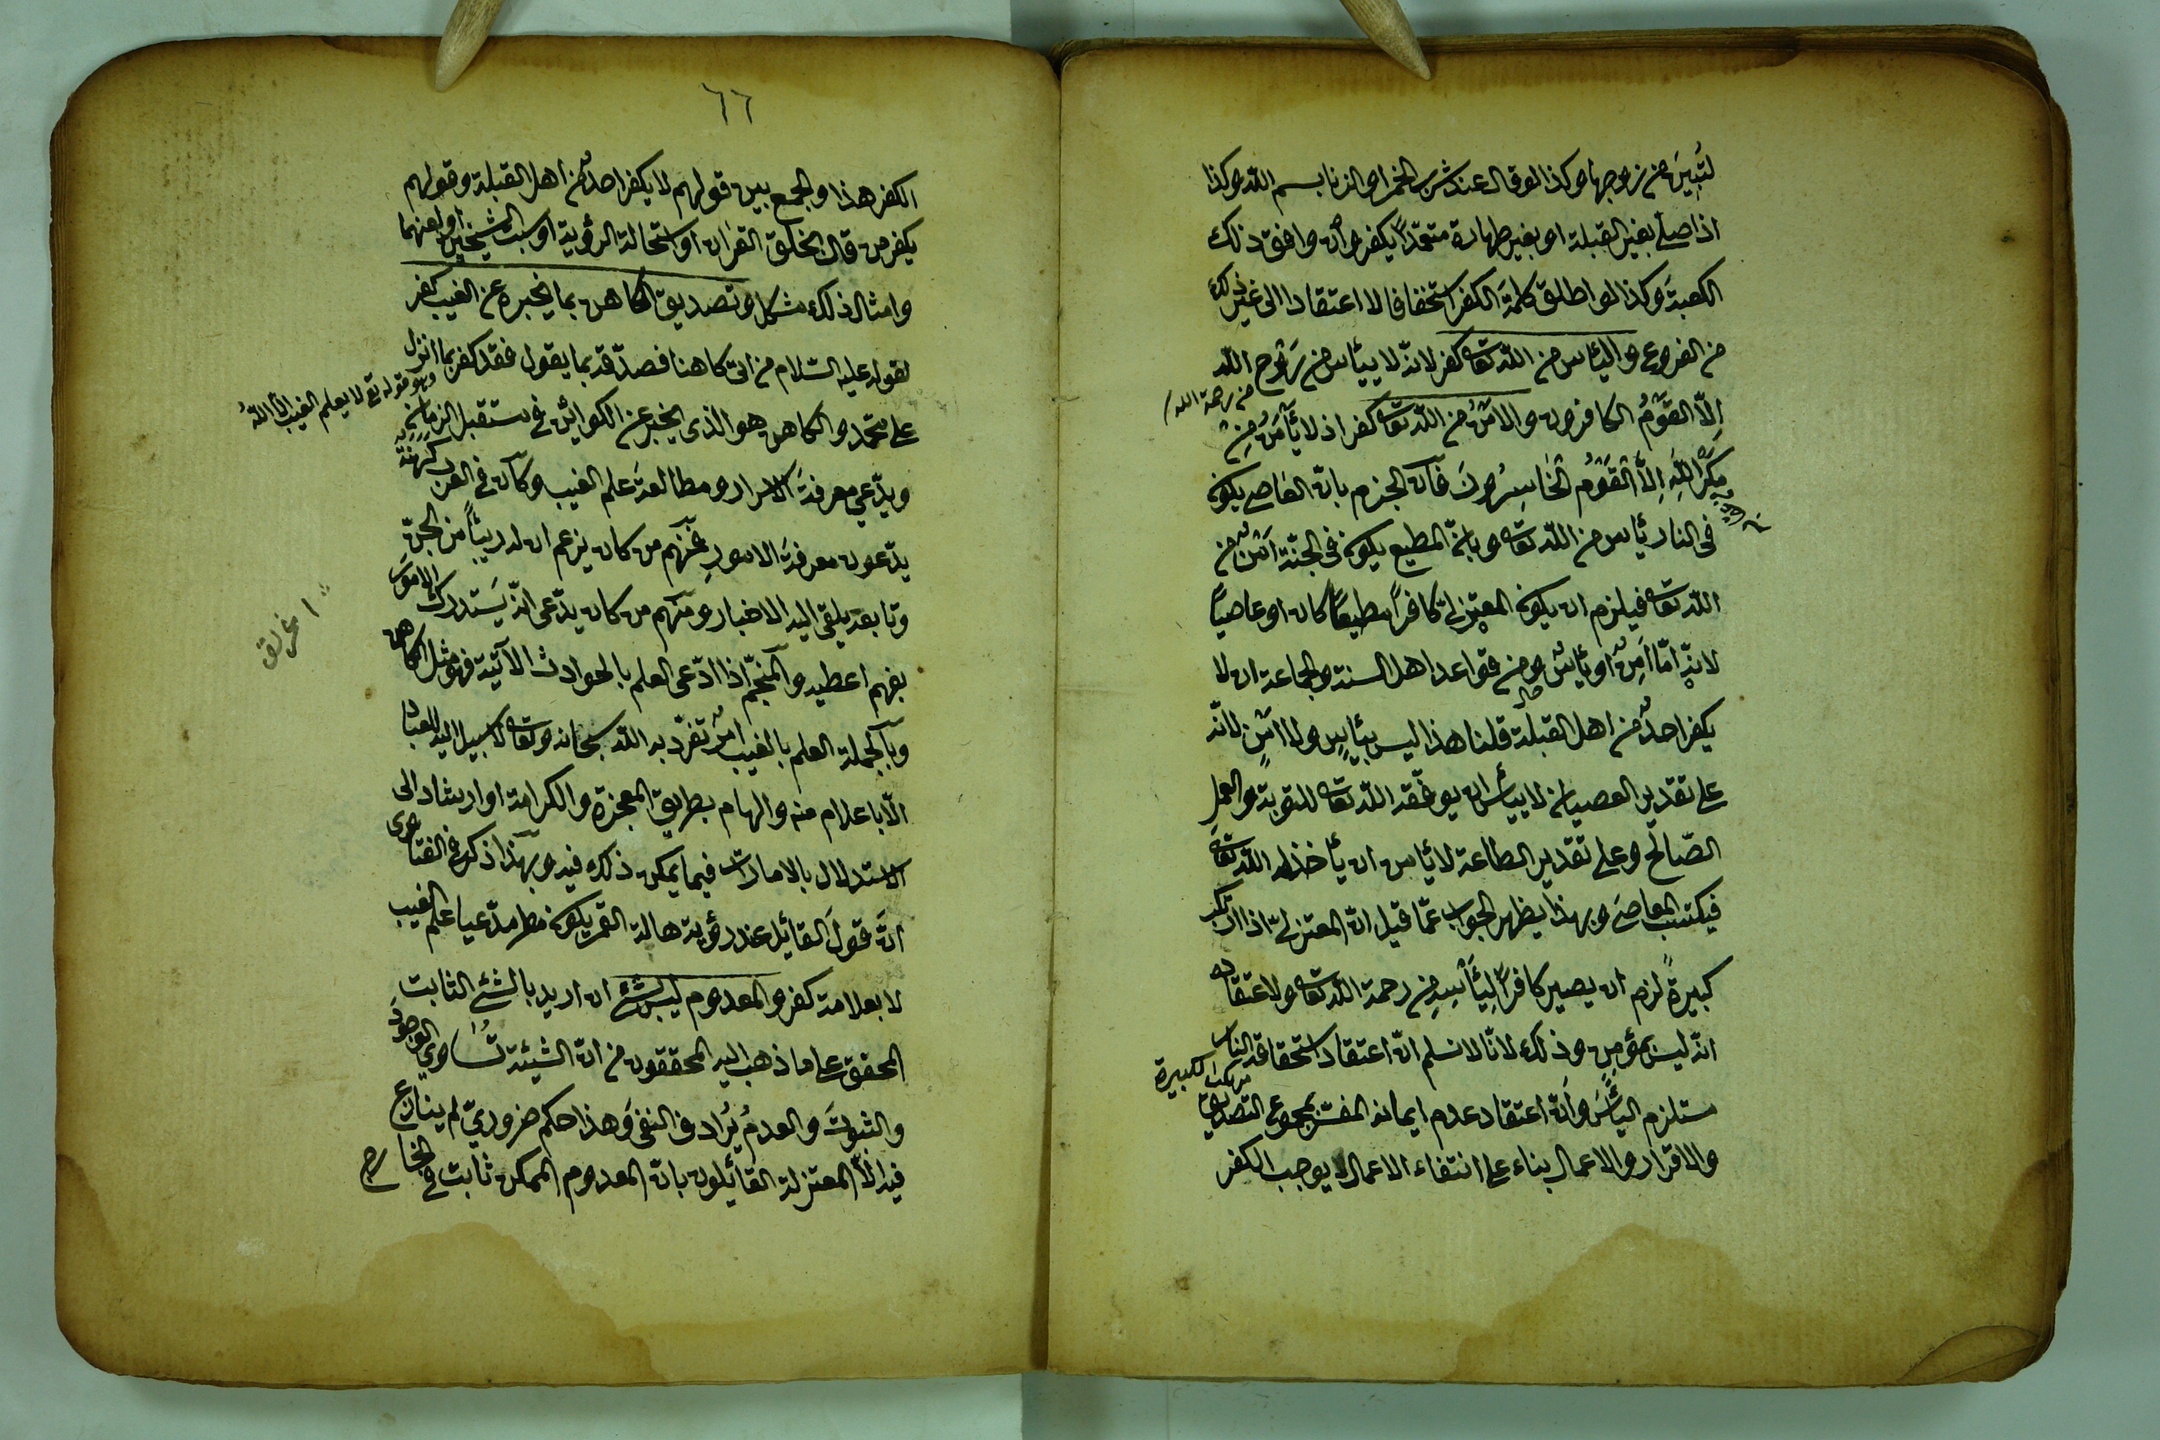 لتبين من زوجها وكذا لو قال عند شرب الخمر او الزنا بسم الله وكذا
اذا صلى بغير القبلة او بغير طهارة متعمدا يكفر وان وافق ذلك
الكعبة وكذا لو اطلق كلمة الكفر استخفافا لا اعتقادا الى غير ذلك
من الفروع واليأس من الله تعالى كفر لانه لا ييأس من رَوح الله
من رحمة الله
اِلّا القَومُ الكافرون والامن من الله تعالى كفر اذ لا يأمن مِن
مَكرِ اللّٰهِ اِلَّا الْقَوْمُ الْخَاسِرُونَ فان الجزم بان العاصي يكون
في النار يأس من الله تعالى وبانّ المطيع يكون في الجنّة اَمْنٌ من
الله تعالى فيلزم ان يكون المعتزلي كافراً مطيعًا كان او عاصيًا
لانه اِمّا اَمِنٌ او يائسٌ ومن قواعد اهل السنة والجماعة ان لا
يكفر احدٌ من اهل القبلة قلنا هذا ليس بيأسٍ ولا امنٍ لانّه
على تقدير العصيان لا ييأس ان يوفّقه الله تعالى للتوبة والعمل
الصّالح وعلى تقدير الطاعة لا يأمن ان يأخذله الله تعالى
فيكتسب المعاصي وبهذا يظهر الجواب عمّا قيل انّ المعتزلي اذا ارتكب
كبيرةً لزم ان يصير كافراً ليأسه من رحمة الله تعالى ولاعتقاده
انّه ليس بمؤمن وذلك لانّا لا نسلم انّ اعتقاد استحقاقه النار
مرتكب الكبيرة
مستلزم اليأسَ وانّ اعتقاد عدم ايمانه المفسّر بمجموع التصديق
والاقرار والاعمال بناء على انتفاء الاعمال لا يوجب الكفر
٦٦
الكفر هذا والجمع بين قولهم لا يكفر احدٌ من اهل القبلة وقولهم
يكفر من قال بخلق القران او استحالة الرؤية او سبّ الشيخين او لعنهما
وامثال ذلك مشكل وتصديق الكاهن بما يخبره عن الغيب كفر
لقوله عليه السّلام من اتى كاهنا فصدّقه بما يقول فقد كفر بما انزل
وهو قوله تع لا يعلم الغيب الّا اللهُ
على محمّد والكاهن هو الذي يخبر عن الكوائن في مستقبل الزمان
ويدّعي معرفة الاسرار ومطالعة علم الغيب وكان في العرب كَهَنَةٌ
يدّعون معرفة الامور فمنهم من كان يزعم ان له رئيّاً من الجنّ
وتابعة يلقى اليه الاخبار ومنهم من كان يدّعي انّه يَستدرك الامور
بفهم اعطيه والمنجّم اذا ادّعى العلم بالحوادث الآتية فهو مثل الكاهن
وبالجملة العلم بالغيب امرٌ تفرّد به الله سبحانه وتعالى لا سبيل اليه للعباد
الّا باعلام منه والهام بطريق المعجزة والكرامة او ارشاد الى
الاستدلال بالامارات فيما يمكن ذلك فيه وبهذا ذكر في الفتاوى
انّ قولَ القائل عند رؤية هالة القمر يكون مطر مدّعيا علم الغيب
لا بعلامة كفر والمعدوم ليس بشئ ان اريد بالشئ الثابت
المحقق على ما ذهب اليه المحققون من انّ الشيئة تُساوي الوجود
والثبوتَ والعدمُ يُرادف النفيَ وهذا حكم ضروريّ لم ينازع
فيه الّا المعتزلة القائلون بانّ المعدوم الممكن ثابت في الخارج